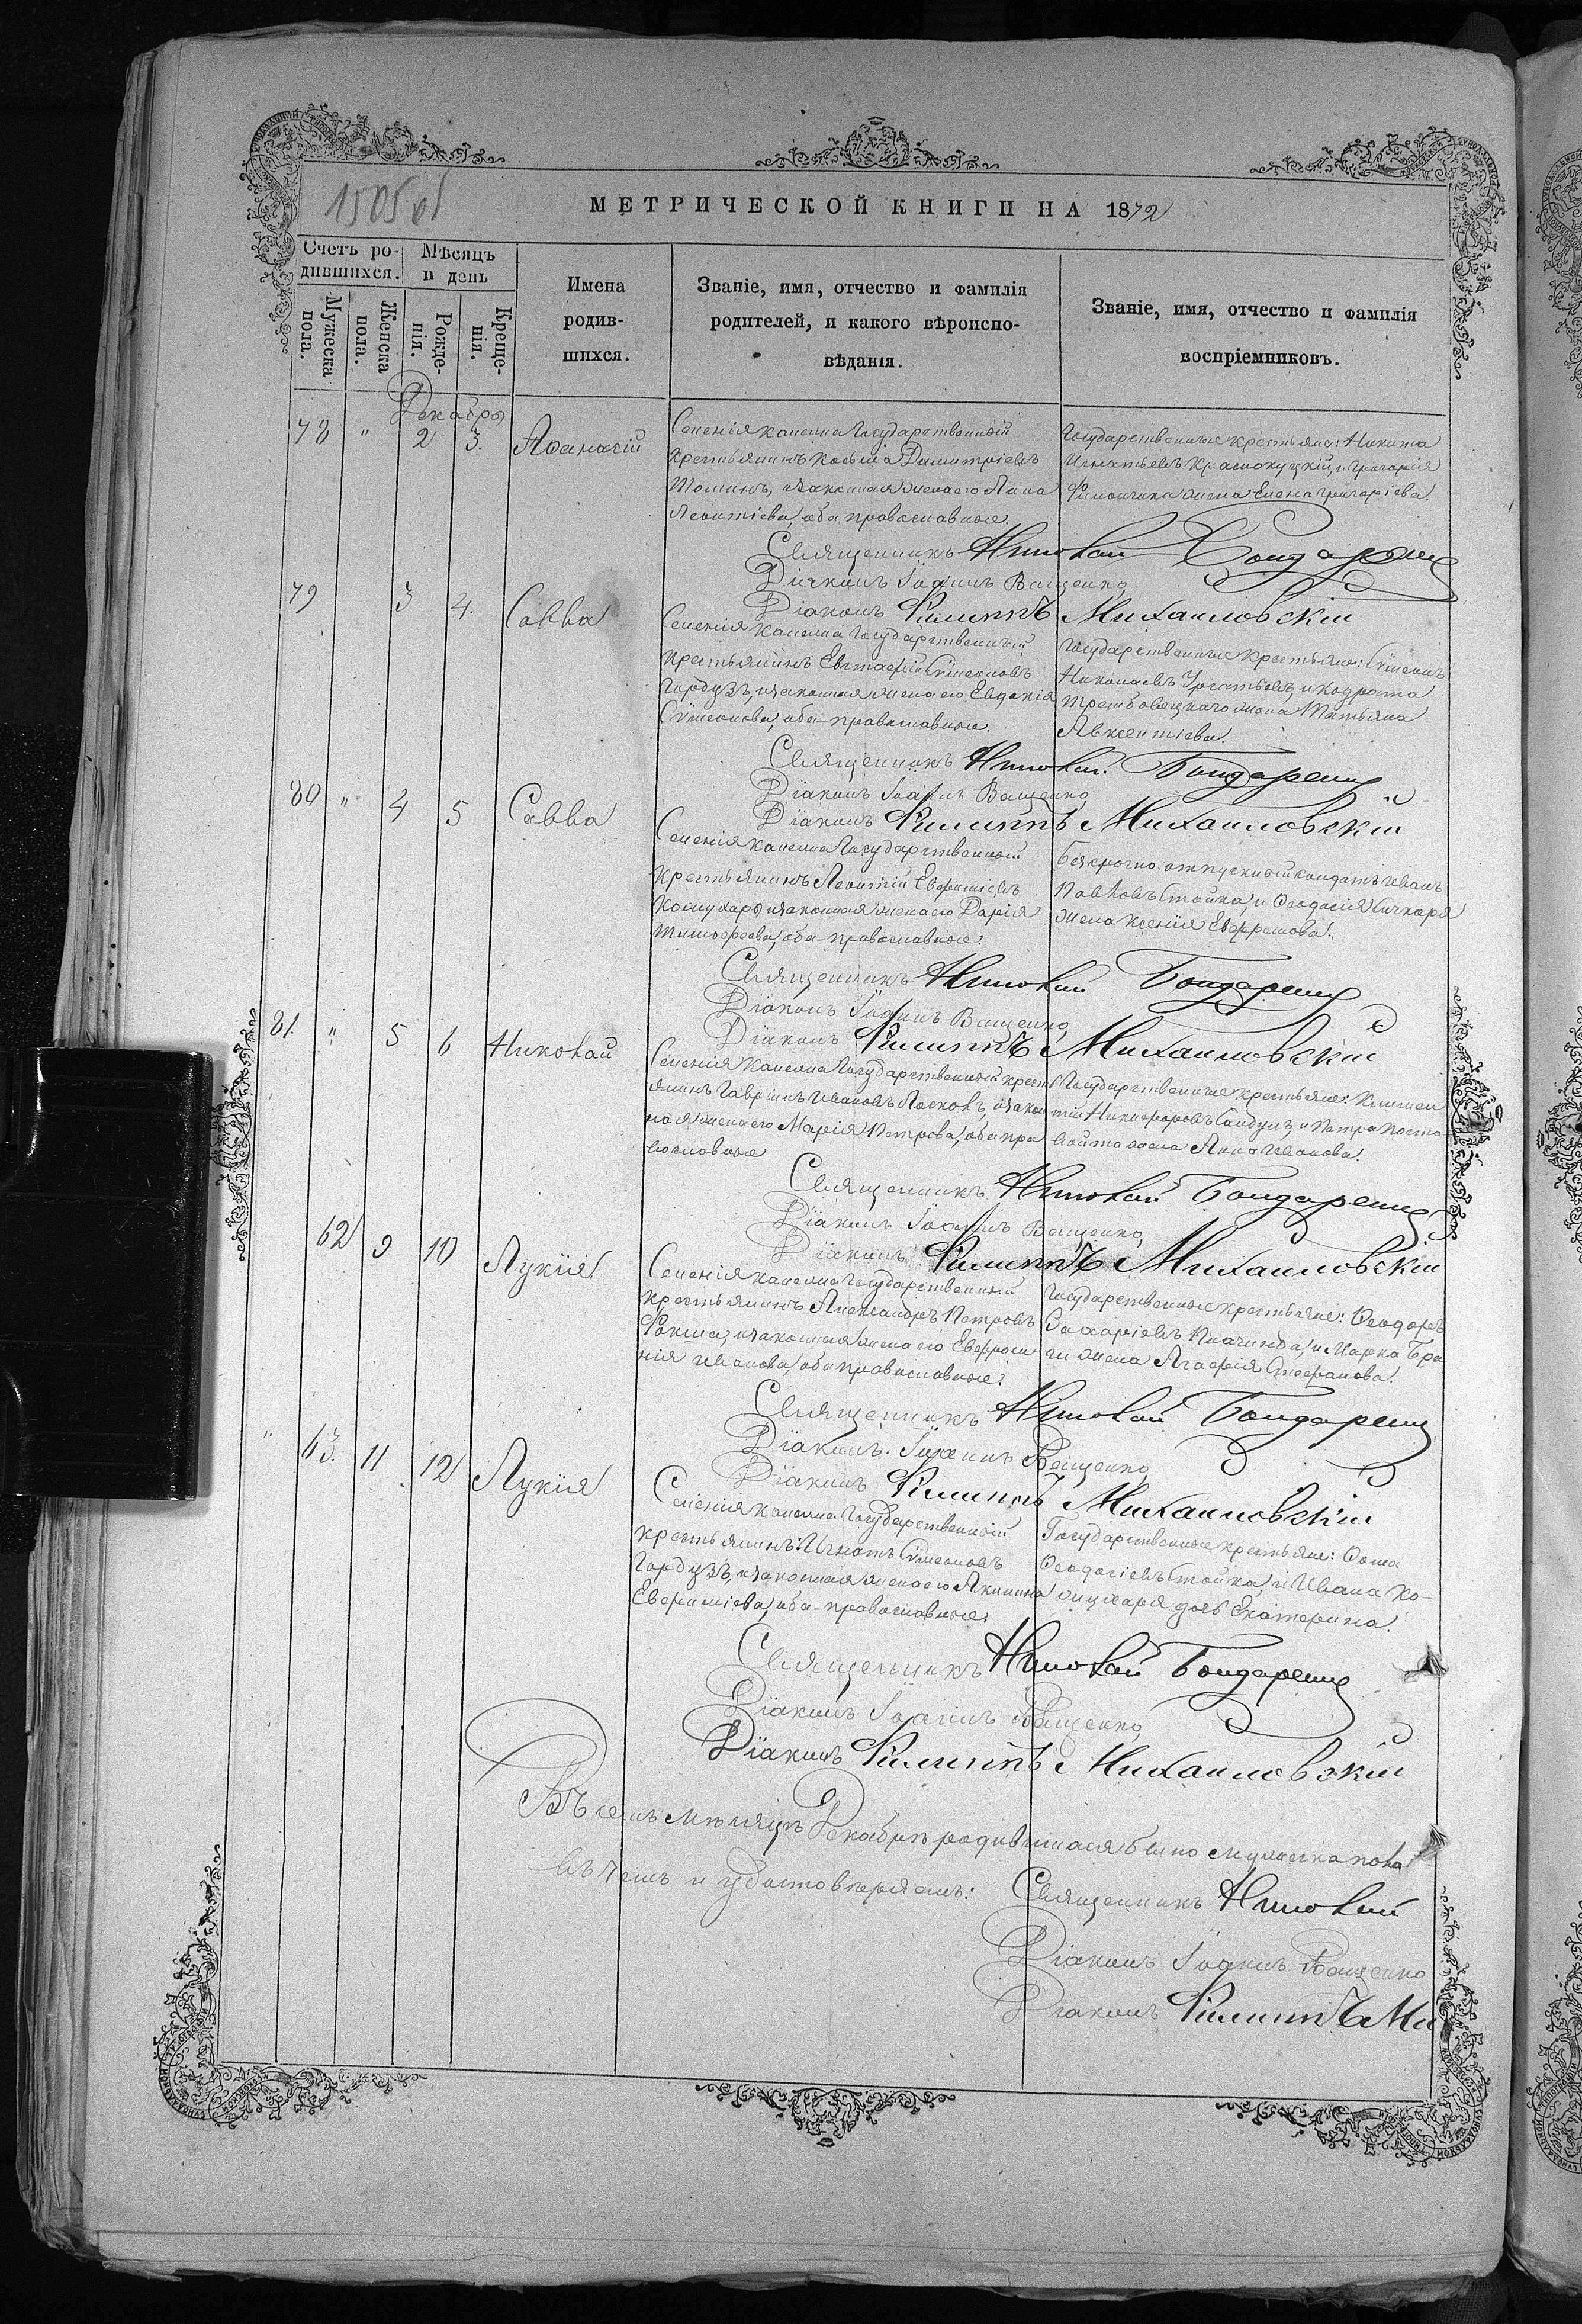 1505 об
МЕТРИЧЕСКОЙ КНИГИ НА 1872
Счетъ ро-
дившихся.
Мѣсяцъ
и день
Мужеска
пола.
Женска
пола.
Рожде-
нія.
Креще-
нія.
Имена
родив-
шихся.
Званіе, имя, отчество и фамилія
родителей, и какого вѣроиспо-
вѣданія.
Званіе, имя, отчество и фамилія
воспріемниковъ.
Декабрь
78 " 2 3. Аѳанасій
Государственный
крестьянинъ Косьма Димитріевъ
и законная жена его Анна
Леонтіева, оба православные.
Государственные крестьяне: Никита
Игнатьевъ Краснокутскій, и Григорія
жена Елена Григоріева.
Священникъ Николай Бондаренко
Діаконъ Іоаннъ Ващенко
Діаконъ Филиппъ Михаиловскій
79 3 4. Савва
Государственный
крестьянинъ Евстафій Сумеоновъ
и законная жена его Евдокія
Сумеонова, оба православные.
Государственные крестьяне: Сумеонъ
Николаевъ и Кодрата
жена Татьяна
Авксентіева.
Священникъ Николай Бондаренко
Діаконъ Іоаннъ Ващенко
Діаконъ Филиппъ Михаиловскій
80 " 4 5 Савва
Государственный
крестьянинъ Леонтій Евфиміевъ
и законная жена его Дарія
Тимофеева, оба православные.
Безсрочно-отпускной солдатъ Иванъ
Павловъ Стойка, и Ѳеодосія
жена Ксенія Евфремова.
Священникъ Николай Бондаренко
Діаконъ Іоаннъ Ващенко
Діаконъ Филиппъ Михаиловскій
81. " 5 6 Николай
Государственный кресть
янинъ Гавріилъ Ивановъ и закон
ная жена его Марія Петрова, оба пра
вославные
Государственные крестьяне: Климен
тій Никифоровъ и Петра Посто
войта жена Анна Иванова.
Священникъ Николай Бондаренко
Діаконъ Іоаннъ Ващенко
Діаконъ Филиппъ Михаиловскій
62 9 10 Лукія
Государственный
крестьянинъ Александръ Петровъ
и законная жена его Евфроси
нія Иванова, оба православные.
Государственные крестьяне: Ѳеодоръ
Захаріевъ Плачинда, и Марка
жена Агафія Стефанова.
Священникъ Николай Бондаренко
Діаконъ Іоаннъ Ващенко
Діаконъ Филиппъ Михаиловскій
" 63. 11 12 Лукія
Государственный
крестьянинъ: Игнатъ Сумеоновъ
и законная жена его Акилина
Евфиміева, оба православные.
Государственные крестьяне: Ѳома
Ѳеодосіевъ Стойка, и Ивана Ко-
дочь Екатерина.
Священникъ Николай Бондаренко
Діаконъ Іоаннъ Ващенко
Діаконъ Филиппъ Михаиловскій
Въ семъ мѣсяцѣ Декабрѣ родившихся было мужеска пола
въ чемъ и удостовѣряемъ:
Священникъ Николай
Діаконъ Іоаннъ Ващенко
Діаконъ Филиппъ Ми